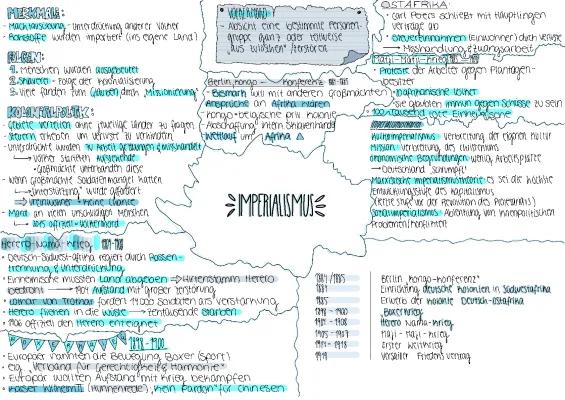 MERKMALE:
- Machtausübung - Unterdrückung anderer Völker
- Rohstoffe wurden importiert (ins eigene Land)
FOLGEN:
1. Menschen wurden ausgebeutet
2. Sklaverei - Folge der Kolonialisierung
3. Viele fanden zum Glauben durch "Missionierung"
KOLONIALPOLITIK:
- Gebiete verteilen ohne jeweilige Länder zu fragen
- Steuern erhoben um
- Unterdrückte wurden zu Arbeit gezwungen & misshandelt
→ Völker starteten Aufstände
→ oft verließen diese
- Wenn Großmächte Soldatenmangel hatten
→ "Unterstützung" wurde gefordert
→ Einwohner = keine Chance
- Mord an vielen unschuldigen Menschen
Herero-Nama-Krieg 1904-1908
- Deutsch-Südwestafrika regiert durch Rassen-
trennung & Unterdrückung
- Einheimische mussten Land abgeben → Hirtenstamm Herero
bedroht → 1904 Aufstand mit großer Zerstörung
- Lothar von Trotha fordert 14000 Soldaten als Verstärkung
- Herero fliehten in die Wüste → Zehntausende starben
- 1906 offiziell den Herero enteignet
1898-1900
- Europäer nannten die Bewegung Boxer (Sport)
- eig. "Verband für Gerechtigkeit & Harmonie"
- Europäer wollten Aufstand mit Krieg bekämpfen
- Kaiser Wilhelm II (Hunnenrede) "Kein Pardon" für Chinesen
VÖLKERMORD
- Absicht eine bestimmte Personen-
gruppe ganz oder teilweise
aus zulöschen / zerstören
Berlin Kongo - Konferenz
- Bismark lud mit anderen Großmächten
Ansprüche an Afrika klären
- Kongo - belgische priv. Kolonie
- Abschaffung intern. Sklavenhandel
- Wettlauf um Afrika
IMPERIALISMUS
OSTAFRIKA:
- Carl Peters schließt mit Häuptlingen
Verträge ab
- Steuereinnahmen (Einwohner) durch Verträge
→ Misshandlung & Zwangsarbeit
Maji-Maji-Krieg
- Proteste der Arbeiter gegen Plantagen-
besitzer
- Sie glaubten immun gegen Schüsse zu sein
- 100-tausend tote Einheimische
Kulturimperialismus Verbreitung der eigenen Kultur
Mission Verbreitung des Christentums
Ökonomische Begründungen wenig Arbeitsplätze
→ Deutschland "schrumpft"
Marxistische Imperialismustheorie es sei die höchste
Entwicklungsstufe des Kapitalismus
(letzte Stufe vor der Revolution des Proletariats)
Sozialimperialismus Ablenkung von innenpolitischen
Problemen/Konflikten
1884/1885 Berlin "Kongo-Konferenz"
1884 Errichtung deutsche Kolonien in Südwestafrika
1885 Erwerb der Kolonie Deutsch-Ostafrika
1898-1900 "Boxerkrieg"
1904-1908 Herero Nama-Krieg
1905-1907 Maji-Maji-Krieg
1914-1918 Erster Weltkrieg
1919 Versailler Friedensvertrag